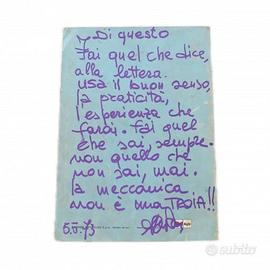 Di questo
Fai quel che dice,
alla lettera.
Usa il buon senso,
la praticità,
l'esperienza che
farai. Fai quel
che sai, sempre.
non quello che
non sai, mai.
la meccanica
non è una TROIA!!
5.II.73
subito